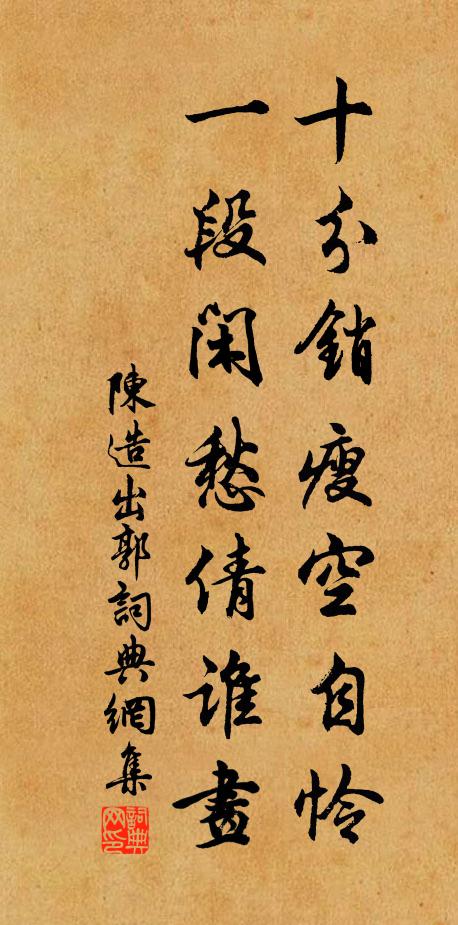 十分銷瘦空自怜
一段閑愁倩誰畫
陳造出郭詞典網集
詞典网印